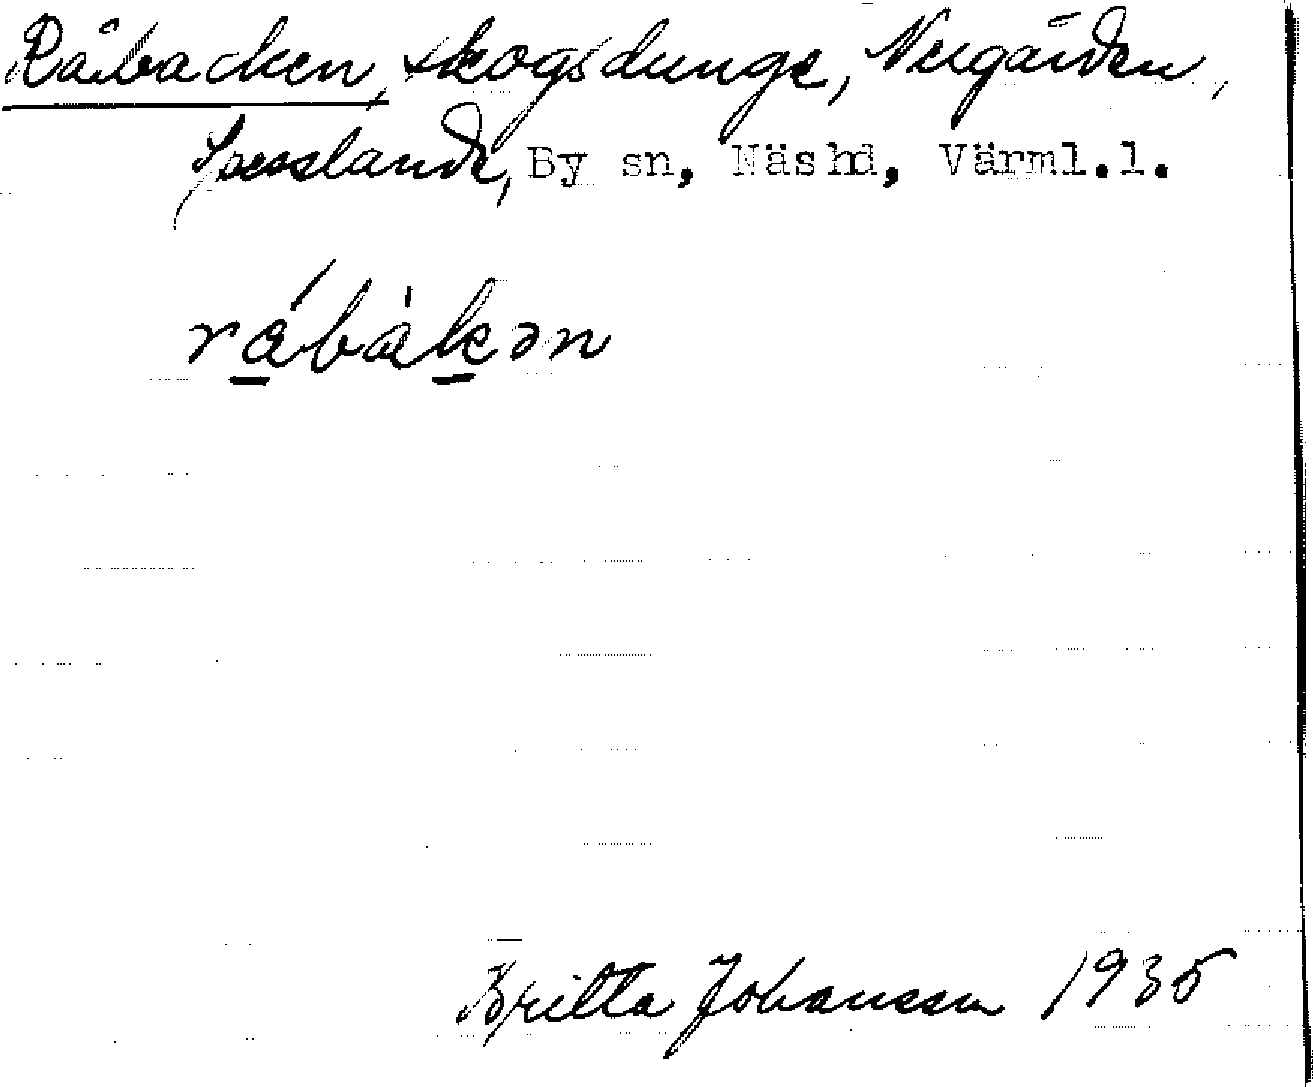 Råbacken, skogsdunge, Nergården,
Speslanda, By sn, Näshd, Värml.l.
råbàkən
Britta Johansson 1935